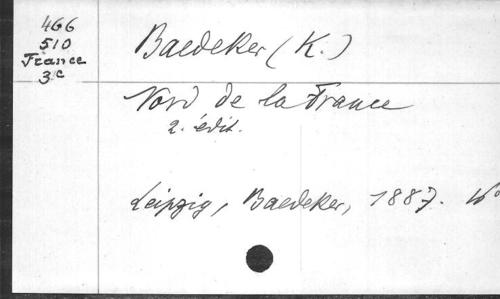 466
510
France
3c
Baedeker (K.)
Nord de la France
2. édit.
Leipzig, Baedeker, 1887.